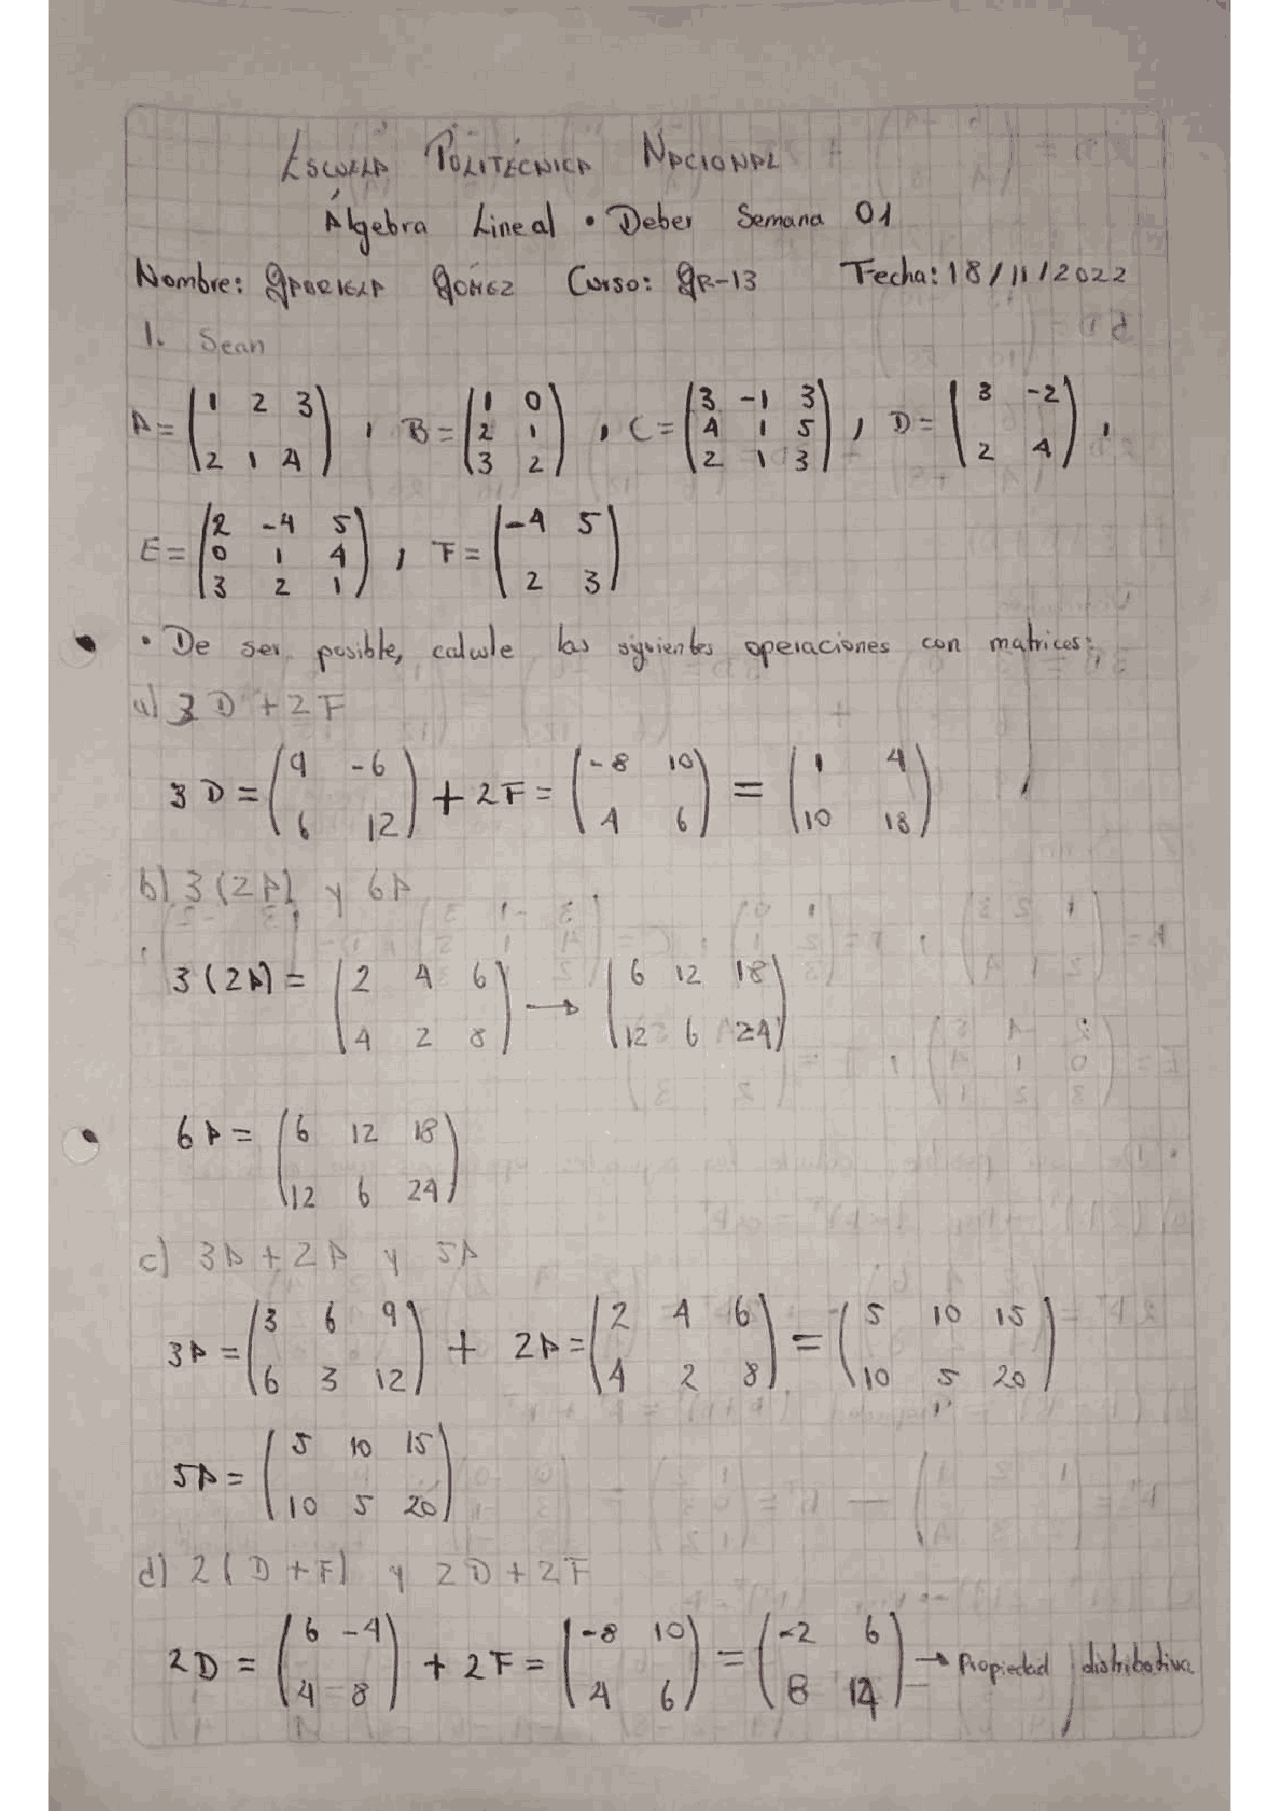 ESCUELA POLITÉCNICA NACIONAL
Álgebra Lineal • Deber Semana 01
Nombre: GABRIELA GÓMEZ Curso: GR-13 Fecha: 18/11/2022
1. Sean
A = (1 2 3; 2 1 4), B = (1 0; 2 1; 3 2), C = (3 -1 3; 4 1 5; 2 1 3), D = (3 -2; 2 4),
E = (2 -4 5; 0 1 4; 3 2 1), F = (-4 5; 2 3)
• De ser posible, calcule las siguientes operaciones con matrices:
a) 3D + 2F
3D = (9 -6; 6 12) + 2F = (-8 10; 4 6) = (1 4; 10 18)
b) 3(2A) y 6A
3(2A) = (2 4 6; 4 2 8) → (6 12 18; 12 6 24)
6A = (6 12 18; 12 6 24)
c) 3A + 2A y 5A
3A = (3 6 9; 6 3 12) + 2A = (2 4 6; 4 2 8) = (5 10 15; 10 5 20)
5A = (5 10 15; 10 5 20)
d) 2(D + F) y 2D + 2F
2D = (6 -4; 4 8) + 2F = (-8 10; 4 6) = (-2 6; 8 14) → Propiedad distributiva